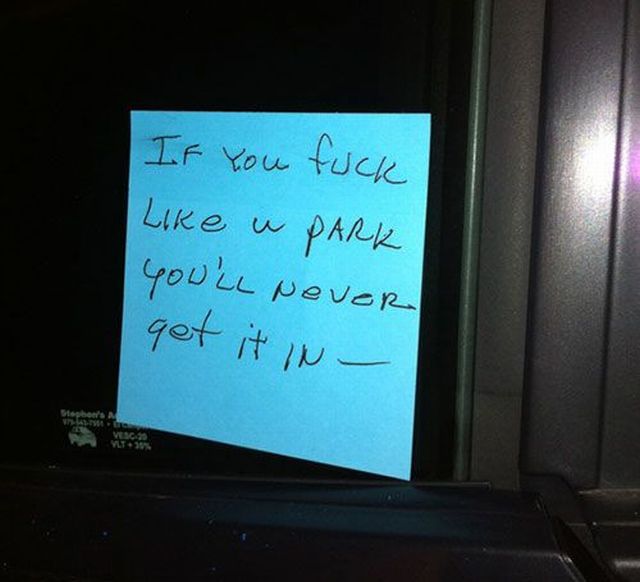 IF You fuck
Like u PARK
you'll Never
get it IN —
Stephen's
VESC-20
VLT + 35%